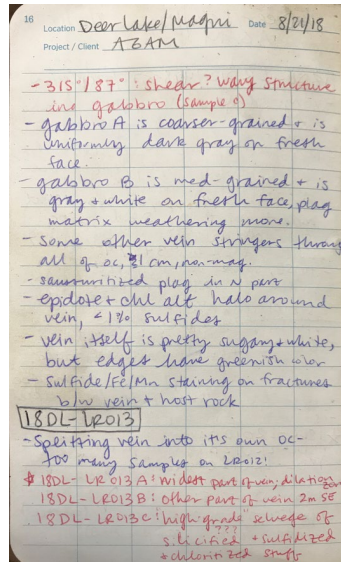 16
Location Deer Lake/Maqui Date 8/21/18
Project / Client AZAM
- 315°/87° : shear? Wavy structure
in gabbro (sample 9)
- gabbro A is coarser-grained + is
uniformly dark gray on fresh
face.
- gabbro B is med-grained + is
gray + white on fresh face, plag
matrix weathering more.
- Some other vein stringers throug
all of oc, 1 cm, non-mag.
- saussuritized plag in N part
- epidote + chl alt halo around
vein, <1% sulfides
- vein itself is pretty sugary + white,
but edges have greenish color
- Sulfide/Fe/Mn staining on fractures
b/w vein + host rock
18DL-LR013
- Splitting vein into it's own oc-
too many samples on LR012!
18DL-LR013A: widest part of vein; dilation zone
18DL-LR013B: other part of vein 2m SE
18DL-LR013C: "high-grade" selvege of
silicified ??? + sulfidized
+ chloritized stuff